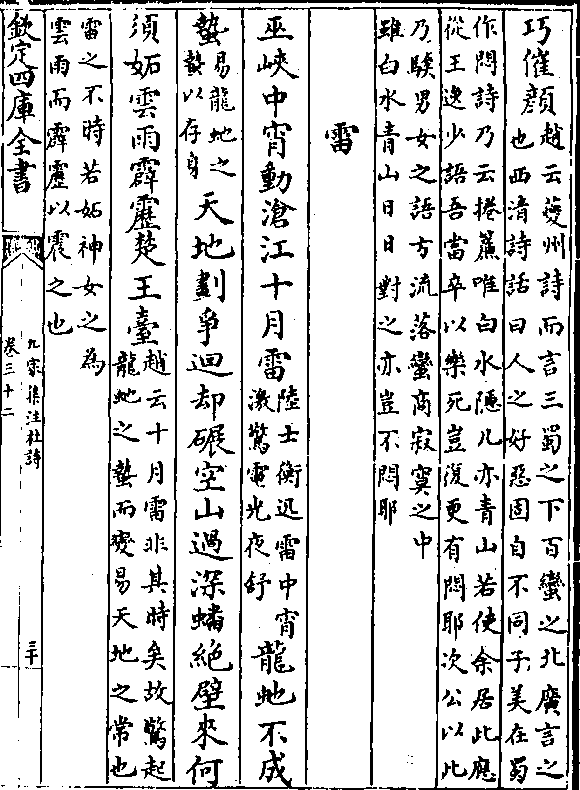 巧催顔趙云夔州詩而言三蜀之下百蠻之北廣言之
也西清詩話曰人之好惡固自不同子美在蜀
作悶詩乃云捲簾唯白水隱几亦青山若使余居此應
從王逸少語吾當卒以樂死豈復更有悶耶次公以此
乃騃男女之語方流落蠻商寂寞之中
雖白水青山日日對之亦豈不悶耶
雷
巫峽中宵動滄江十月雷陸士衡迅雷中宵
激驚電光夜舒龍虵不成
蟄易龍虵之
蟄以存身天地劃爭迴却碾空山過深蟠絶壁來何
須妬雲雨霹靂楚王臺趙云十月雷非其時矣故驚起
龍虵之蟄而變易天地之常也
雷之不時若妬神女之為
雲雨而霹靂以震之也
欽定四庫全書
九家集注杜詩
卷三十二
三十